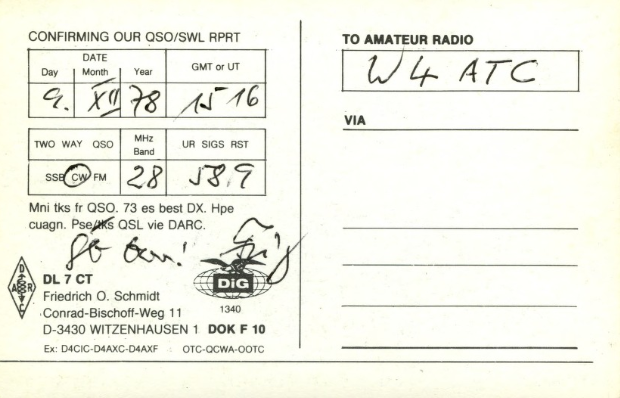 CONFIRMING OUR QSO/SWL RPRT
DATE
Day Month Year GMT or UT
9. XII 78 15 16
TWO WAY QSO MHz Band UR SIGS RST
SSB CW FM 28 589
Mni tks fr QSO. 73 es best DX. Hpe
cuagn. Pse/tks QSL vie DARC.
DARC
DL 7 CT
Friedrich O. Schmidt
Conrad-Bischoff-Weg 11
D-3430 WITZENHAUSEN 1 DOK F 10
Ex: D4CIC-D4AXC-D4AXF OTC-QCWA-OOTC
DIG
1340
TO AMATEUR RADIO
W4ATC
VIA